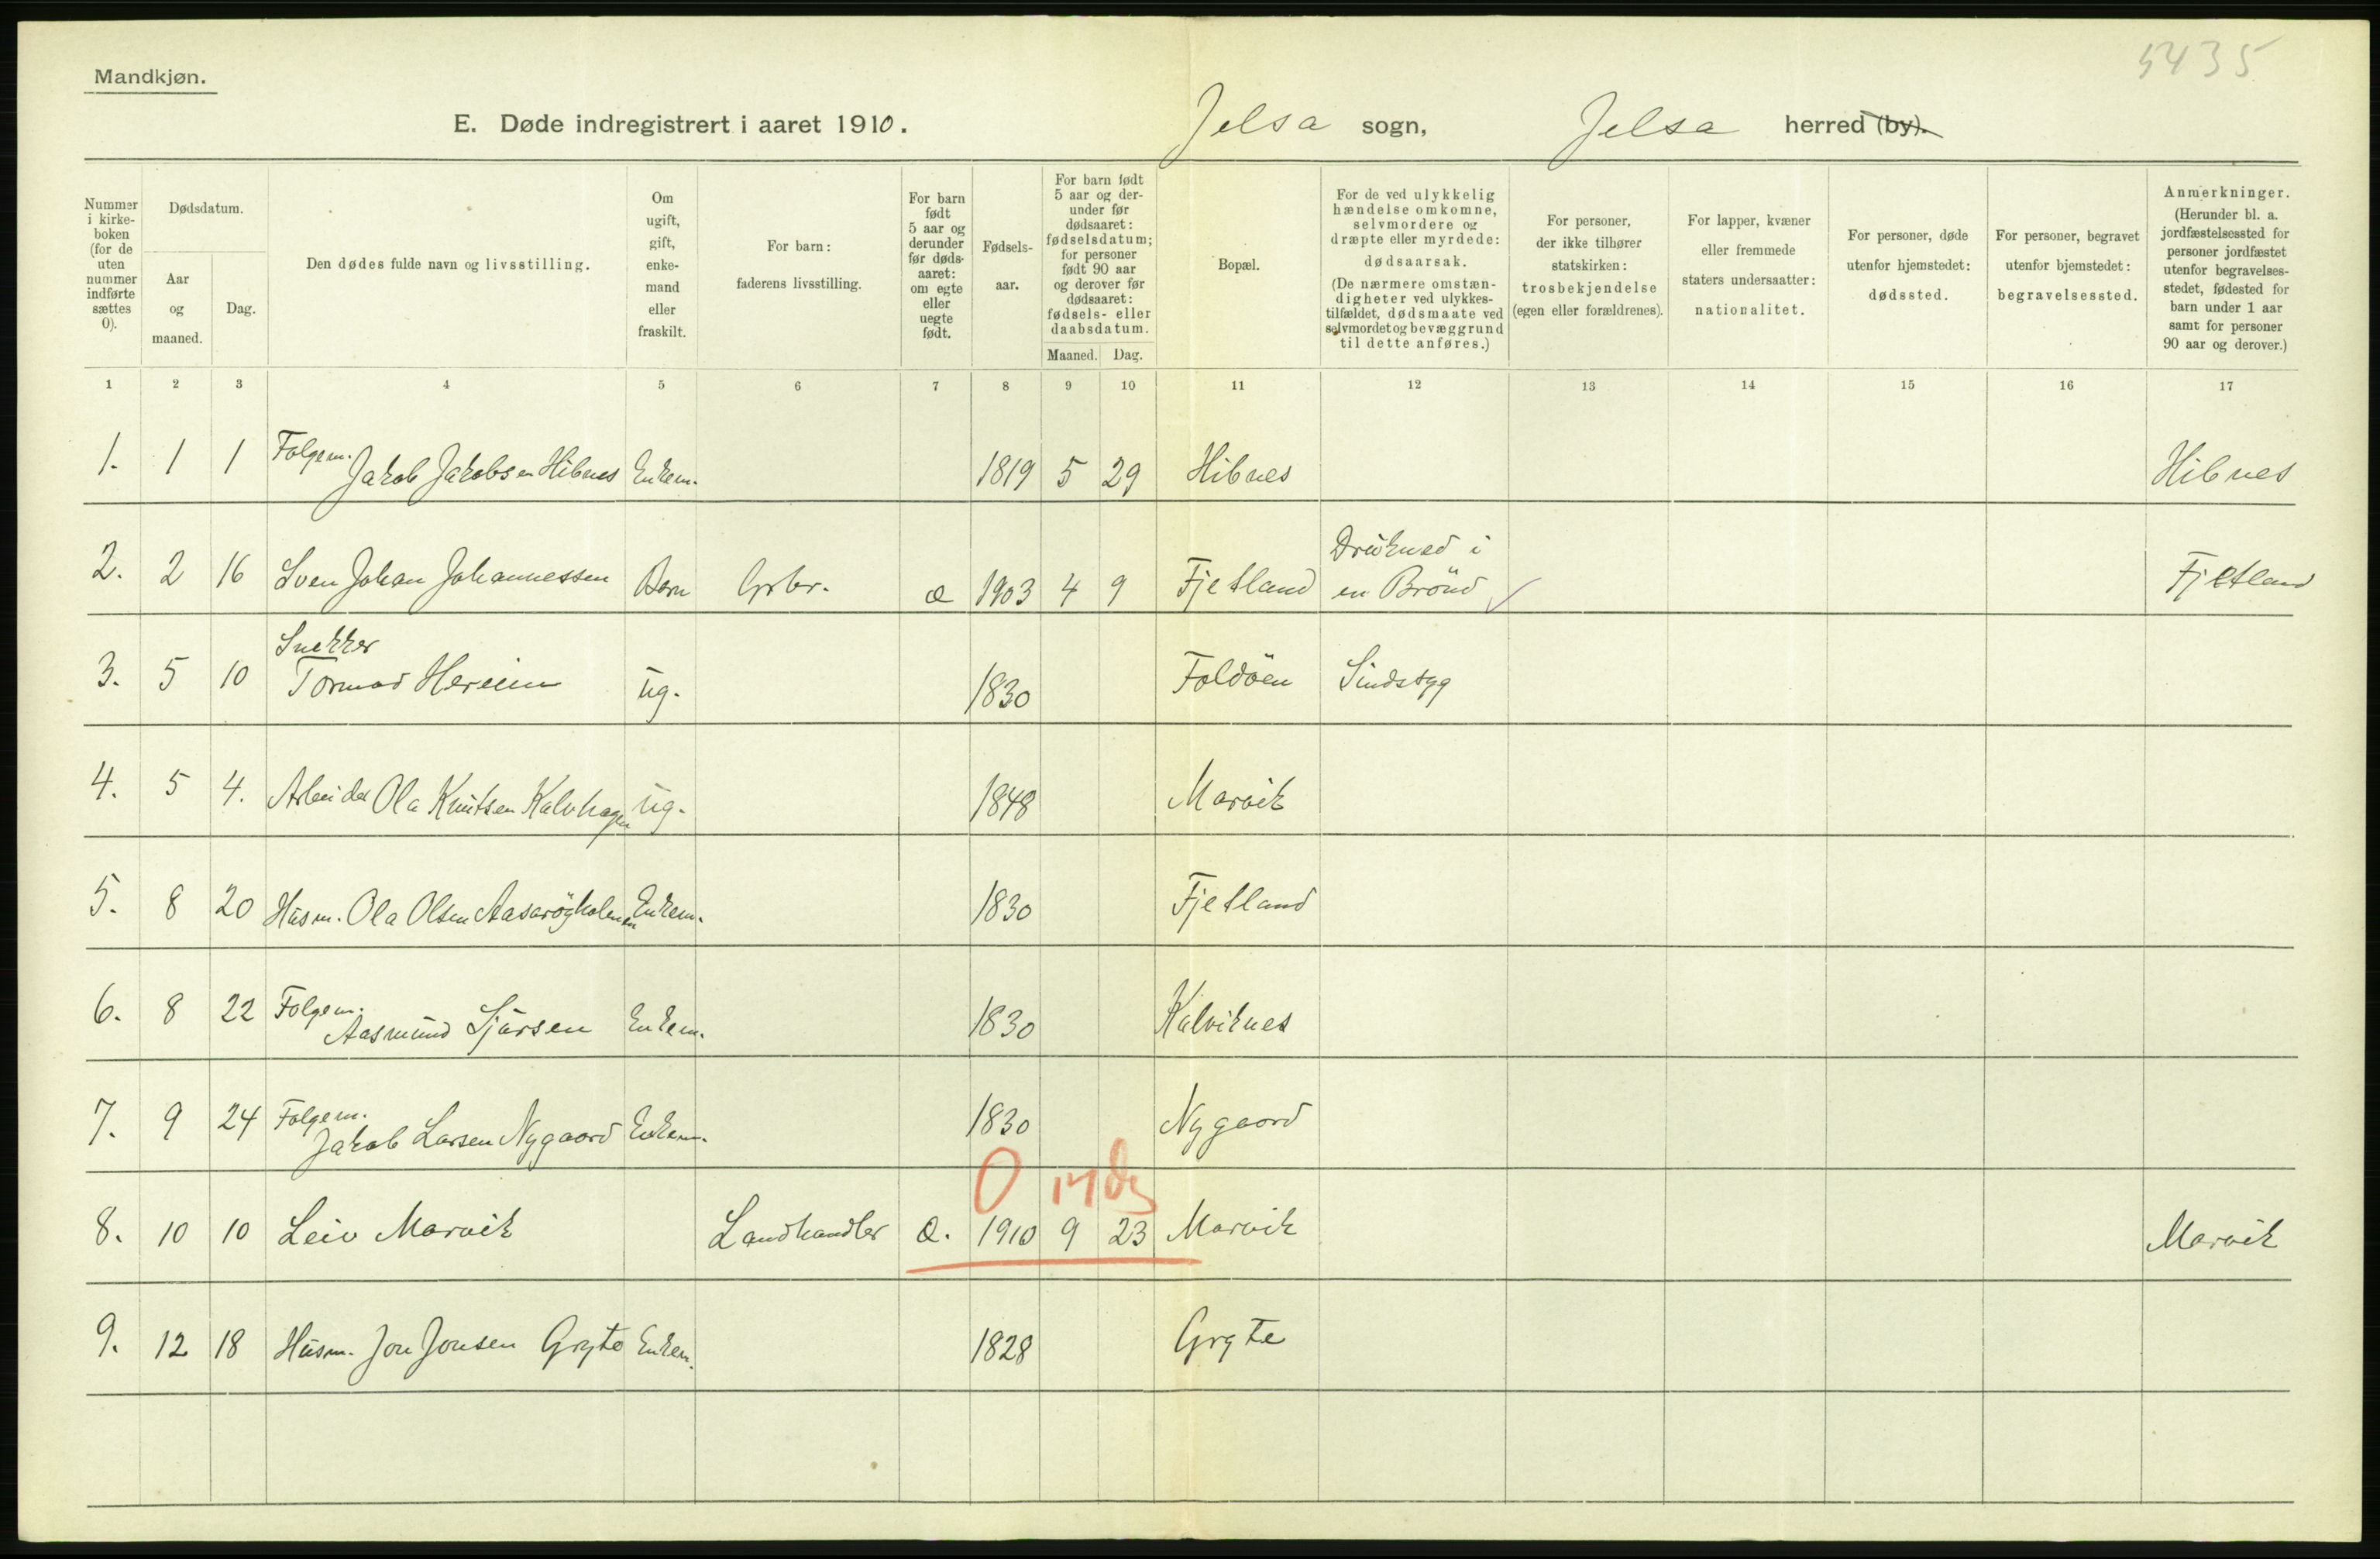 5435
Mandkjøn.
E. Døde indregistrert i aaret 1910. Jelsa sogn, Jelsa herred (by).
Nummer i kirke- boken (for de uten nummer indførte sættes 0).
Dødsdatum.
Aar og maaned.
Dag.
Den dødes fulde navn og livsstilling.
Om ugift, gift, enke- mand eller fraskilt.
For barn: faderens livsstilling.
For barn født 5 aar og derunder før døds- aaret: om egte eller uegte født.
Fødsels- aar.
For barn født 5 aar og der- under før dødsaaret: fødselsdatum; for personer født 90 aar og derover før dødsaaret: fødsels- eller daabsdatum.
Maaned. Dag.
Bopæl.
For de ved ulykkelig hændelse omkomne, selvmordere og dræpte eller myrdede: dødsaarsak. (De nærmere omstæn- digheter ved ulykkes- tilfældet, dødsmaate ved selvmordet og bevæggrund til dette anføres.)
For personer, der ikke tilhører statskirken: trosbekjendelse (egen eller forældrenes).
For lapper, kvæner eller fremmede staters undersaatter: nationalitet.
For personer, døde utenfor hjemstedet: dødssted.
For personer, begravet utenfor bjemstedet: begravelsessted.
Anmerkninger. (Herunder bl. a. jordfæstelsessted for personer jordfæstet utenfor begravelses- stedet, fødested for barn under 1 aar samt for personer 90 aar og derover.)
1 2 3 4 5 6 7 8 9 10 11 12 13 14 15 16 17
1. 1 1 Folgem. Jakob Jakobsen Hibnes Enkem. 1819 5 29 Hibnes Hibnes
2. 2 16 Sven Johan Johannessen Barn Grbr. æ 1903 4 9 Fjetland Drukned i en Brönd Fjetland
3. 5 10 Snekker Tormod Hereim ug. 1830 Foldöen Sindssyg
4. 5 4. Arbeider Ola Knutsen Kalvhagen ug. 1848 Marvik
5. 8 20 Husm. Ola Olsen Enkem. 1830 Fjetland
6. 8 22 Folgem. Aasmund Sjursen Enkem. 1830 Kalviknes
7. 9 24 Folgem. Jakob Larsen Nygaard Enkem. 1830 Nygaard
0 17 dg
8. 10 10 Leiv Marvik Landhandler æ. 1910 9 23 Marvik Marvik
9. 12 18 Husm. Jon Jonsen Gryte Enkem. 1828 Gryte